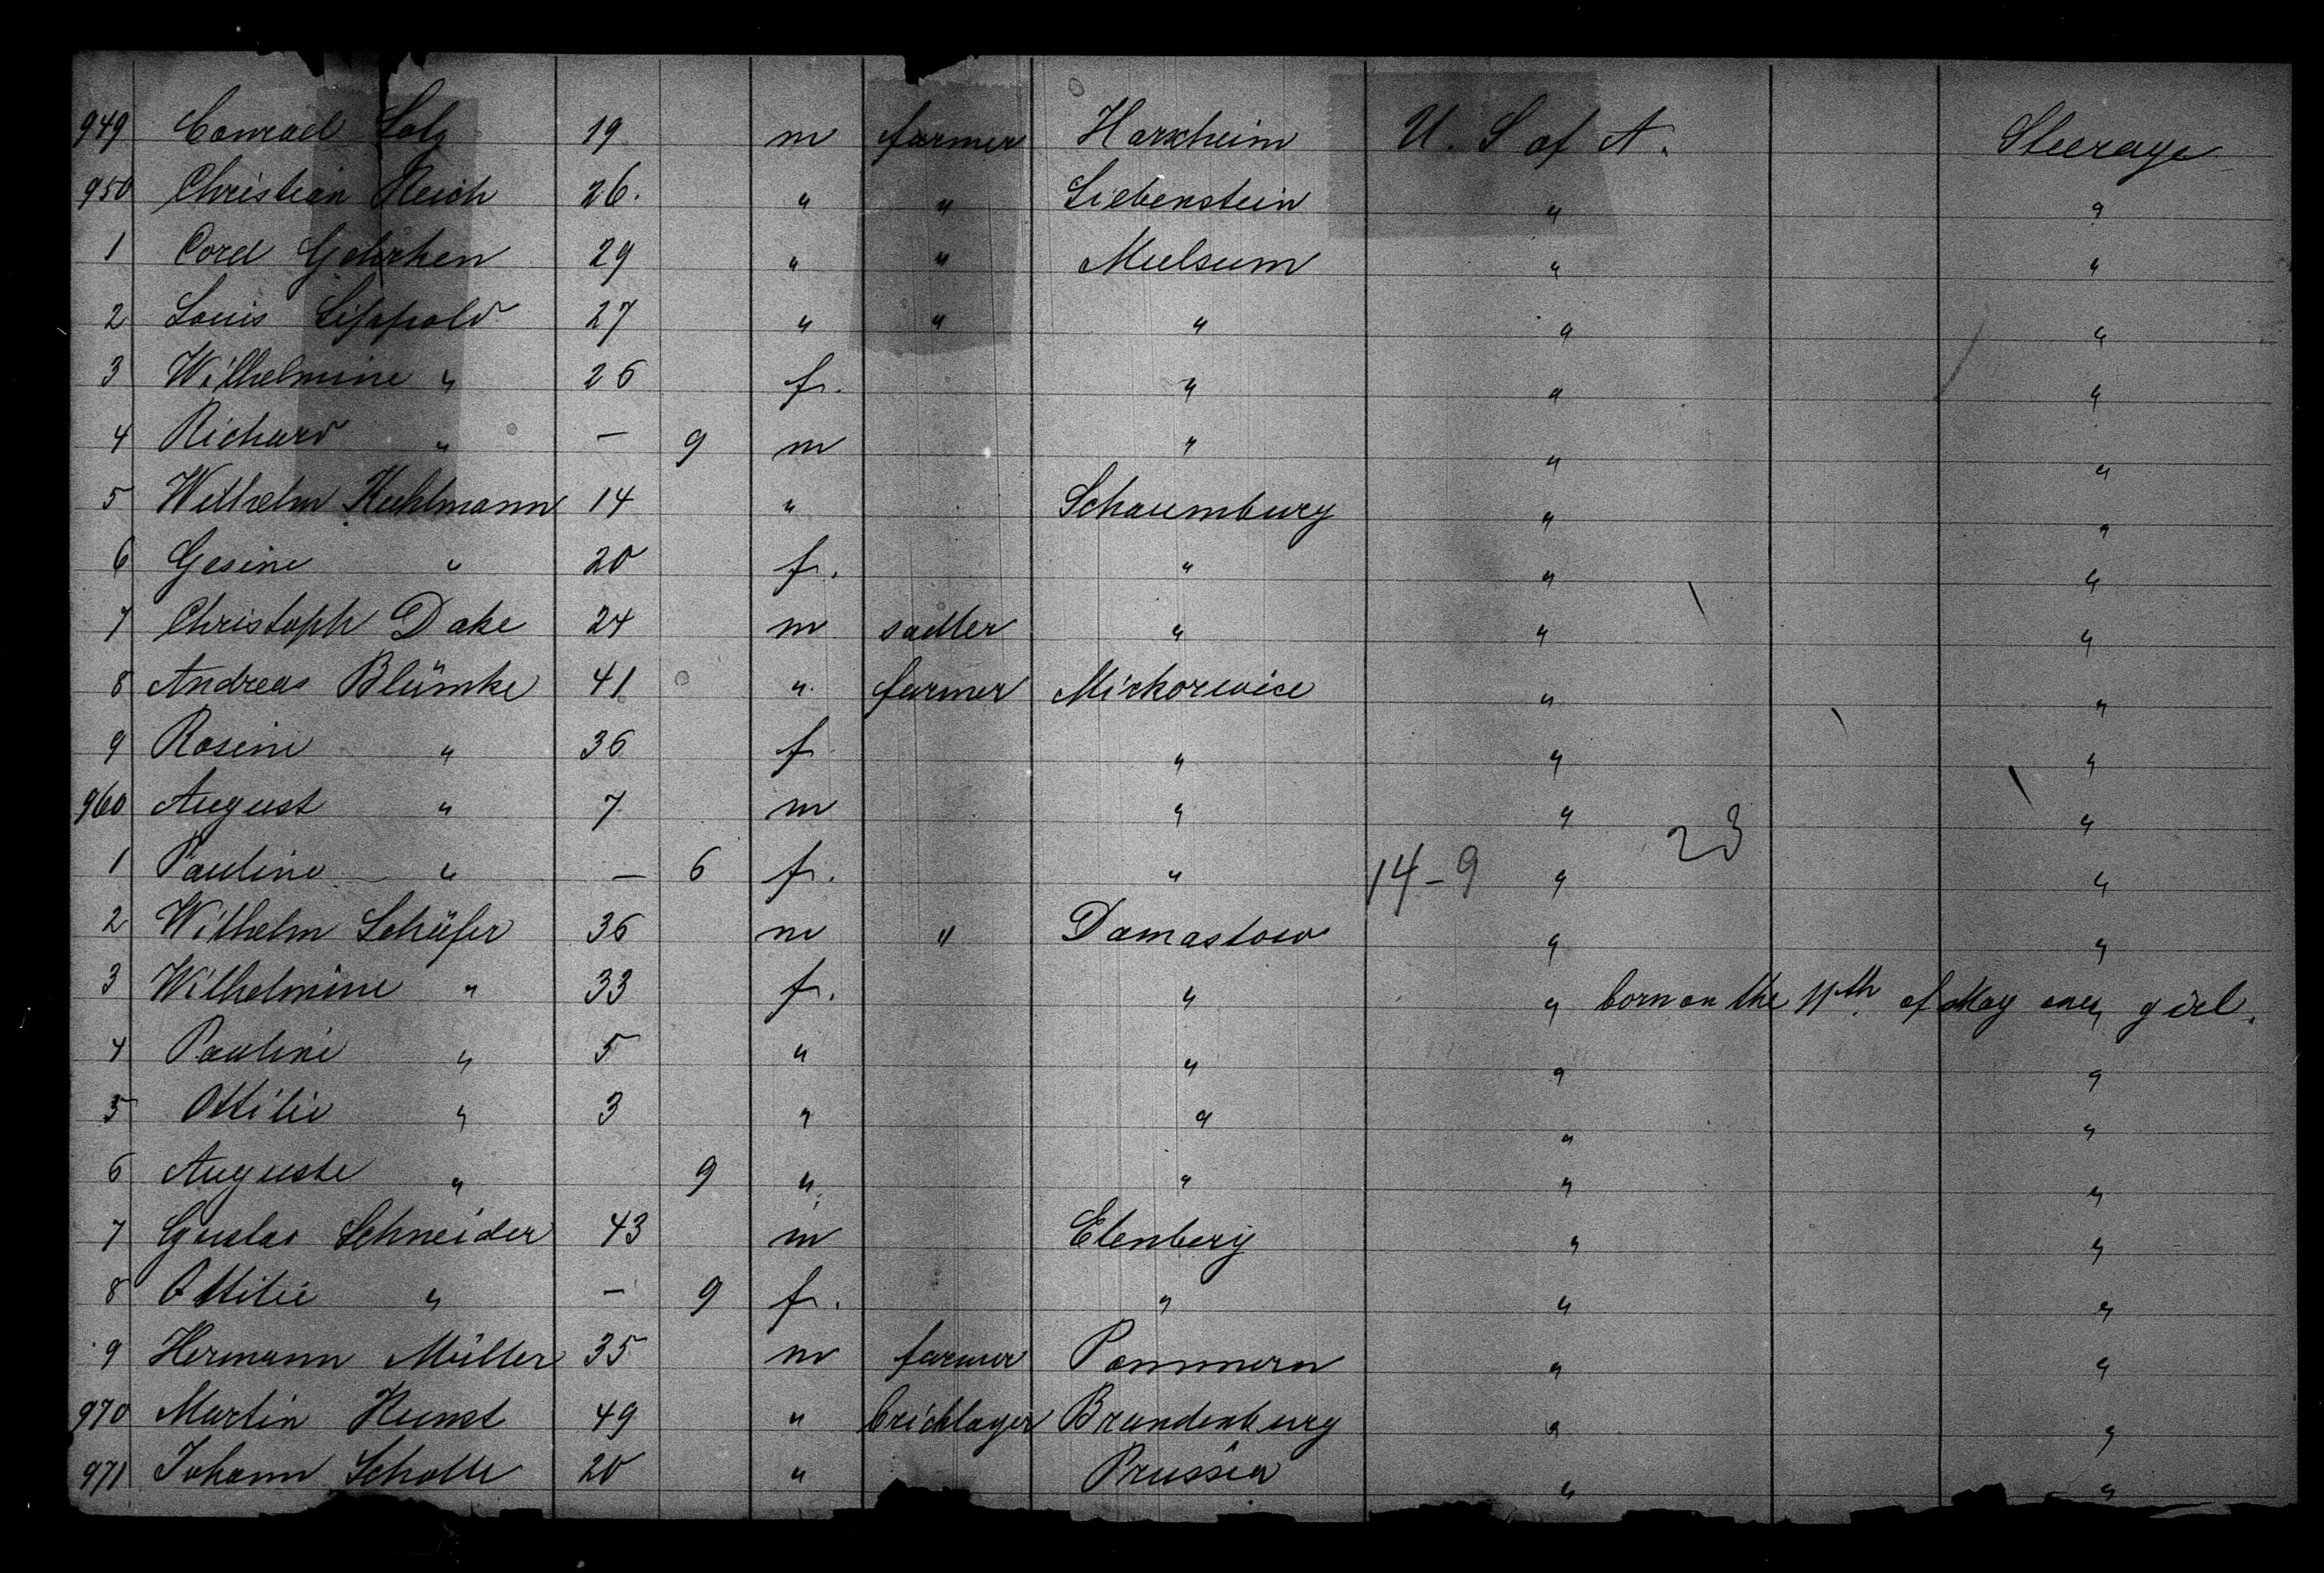 949 Conrad Solz 19 m farmer Harxheim U. S of A. Steerage
950 Christian Reich 26. " " Liebenstein " "
1 Cord " " 29 " " Mulsum " "
2 Louis Lippold 27 " " " " "
3 Wilhelmine " 26 f. " " "
4 Richard " – 9 m " " "
5 Wilhelm Kuhlmann 14 " Schaumburg " "
6 Gesine " 20 f. " " "
7 Christoph Dake 24 m sadler " " "
8 Andreas Blümke 41 " farmer " "
9 Rosine " 36 f " " "
960 August " 7 m " " "
1 Pauline " – 6 f. " 14-9 " 23 "
2 Wilhelm Schäfer 36 m " Damastow " "
3 Wilhelmine " 33 f. " " born on the 11th. of May one girl. "
4 Pauline " 5 " " " "
5 Ottilie " 3 " " " "
6 Auguste " 9 " " " "
7 Gustav Schneider 43 m Elenberg " "
8 Ottilie " – 9 f. " " "
9 Hermann Müller 35 m farmer Pommern " "
970 Martin Kunst 49 " bricklayer Brandenburg " "
971 Johann Scholle 20 " Prussia " "